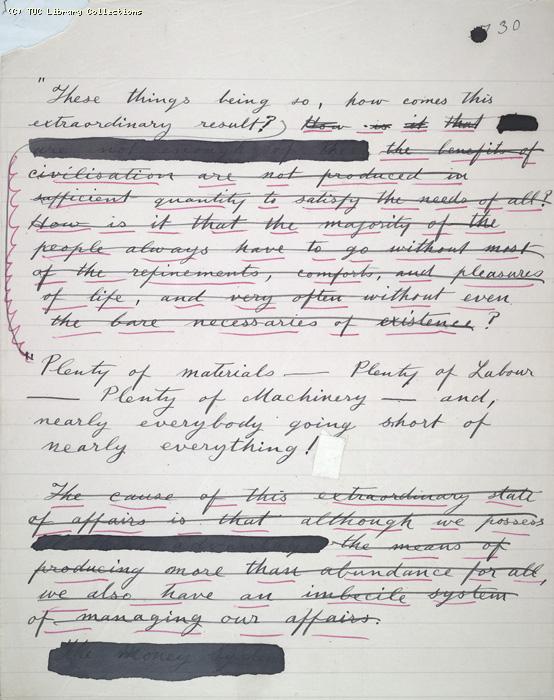 (C) TUC Library Collections
730
"These things being so, how comes this
extraordinary result?) How is it that
are not enough of the the benefits of
civilisation are not produced in
sufficient quantity to satisfy the needs of all?
How is it that the majority of the
people always have to go without most
of the refinements, comforts, and pleasures
of life, and very often without even
the bare necessaries of existence?
"Plenty of materials — Plenty of Labour
— Plenty of Machinery — and,
nearly everybody going short of
nearly everything!
The cause of this extraordinary state
of affairs is that although we possess
the means of
producing more than abundance for all,
we also have an imbecile system
of managing our affairs.
the money system